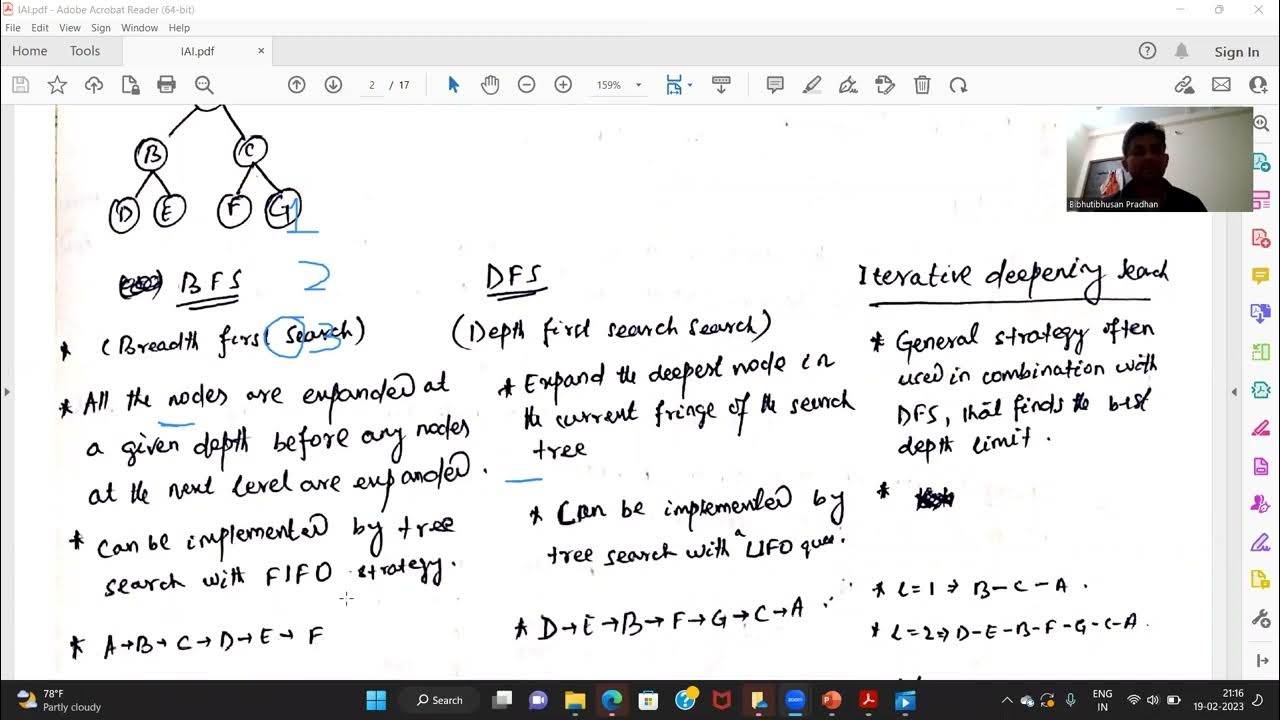 IAI.pdf - Adobe Acrobat Reader (64-bit)
File Edit View Sign Window Help
Home Tools IAI.pdf × Sign In
2 / 17 159%
B C
D E F G 1
BFS 2 DFS Iterative deepening Seach
* (Breadth first Search) 3
(Depth first search search)
* All the nodes are expanded at
a given depth before any nodes
at the next level are expanded.
* Can be implemented by tree
search with FIFO strategy.
* A→B→C→D→E→ F
* Expand the deepest node in
the current fringe of the search
tree
* Can be implemented by
tree search with a LIFO queue.
* D→E→B→F→G→C→A
* General strategy often
used in combination with
DFS, that finds the best
depth limit.
*
* L=1 ⇒ B-C-A.
* L=2 ⇒ D-E-B-F-G-C-A.
Bibhutibhusan Pradhan
78°F
Partly cloudy
Search
ENG
IN
21:16
19-02-2023